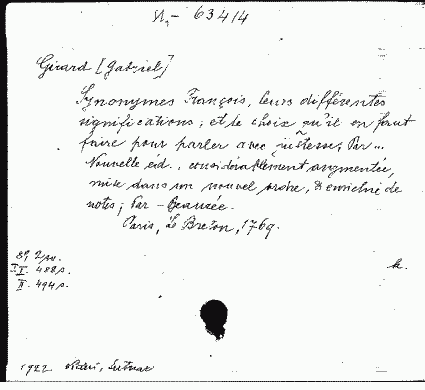 Sl,- 63414
Girard [Gabriel]
Synonymes François, leurs différentes
significations, et le choix qu'il en faut
faire pour parler avec justesse; Par...
Nouvelle éd., considérablement augmentée,
mise dans un nouvel ordre, & enrichie de
notes; Par - Beauzée.
Paris, Le Breton, 1769.
8°, 2
T.I. 488 p.
II. 494 p.
k.
1922